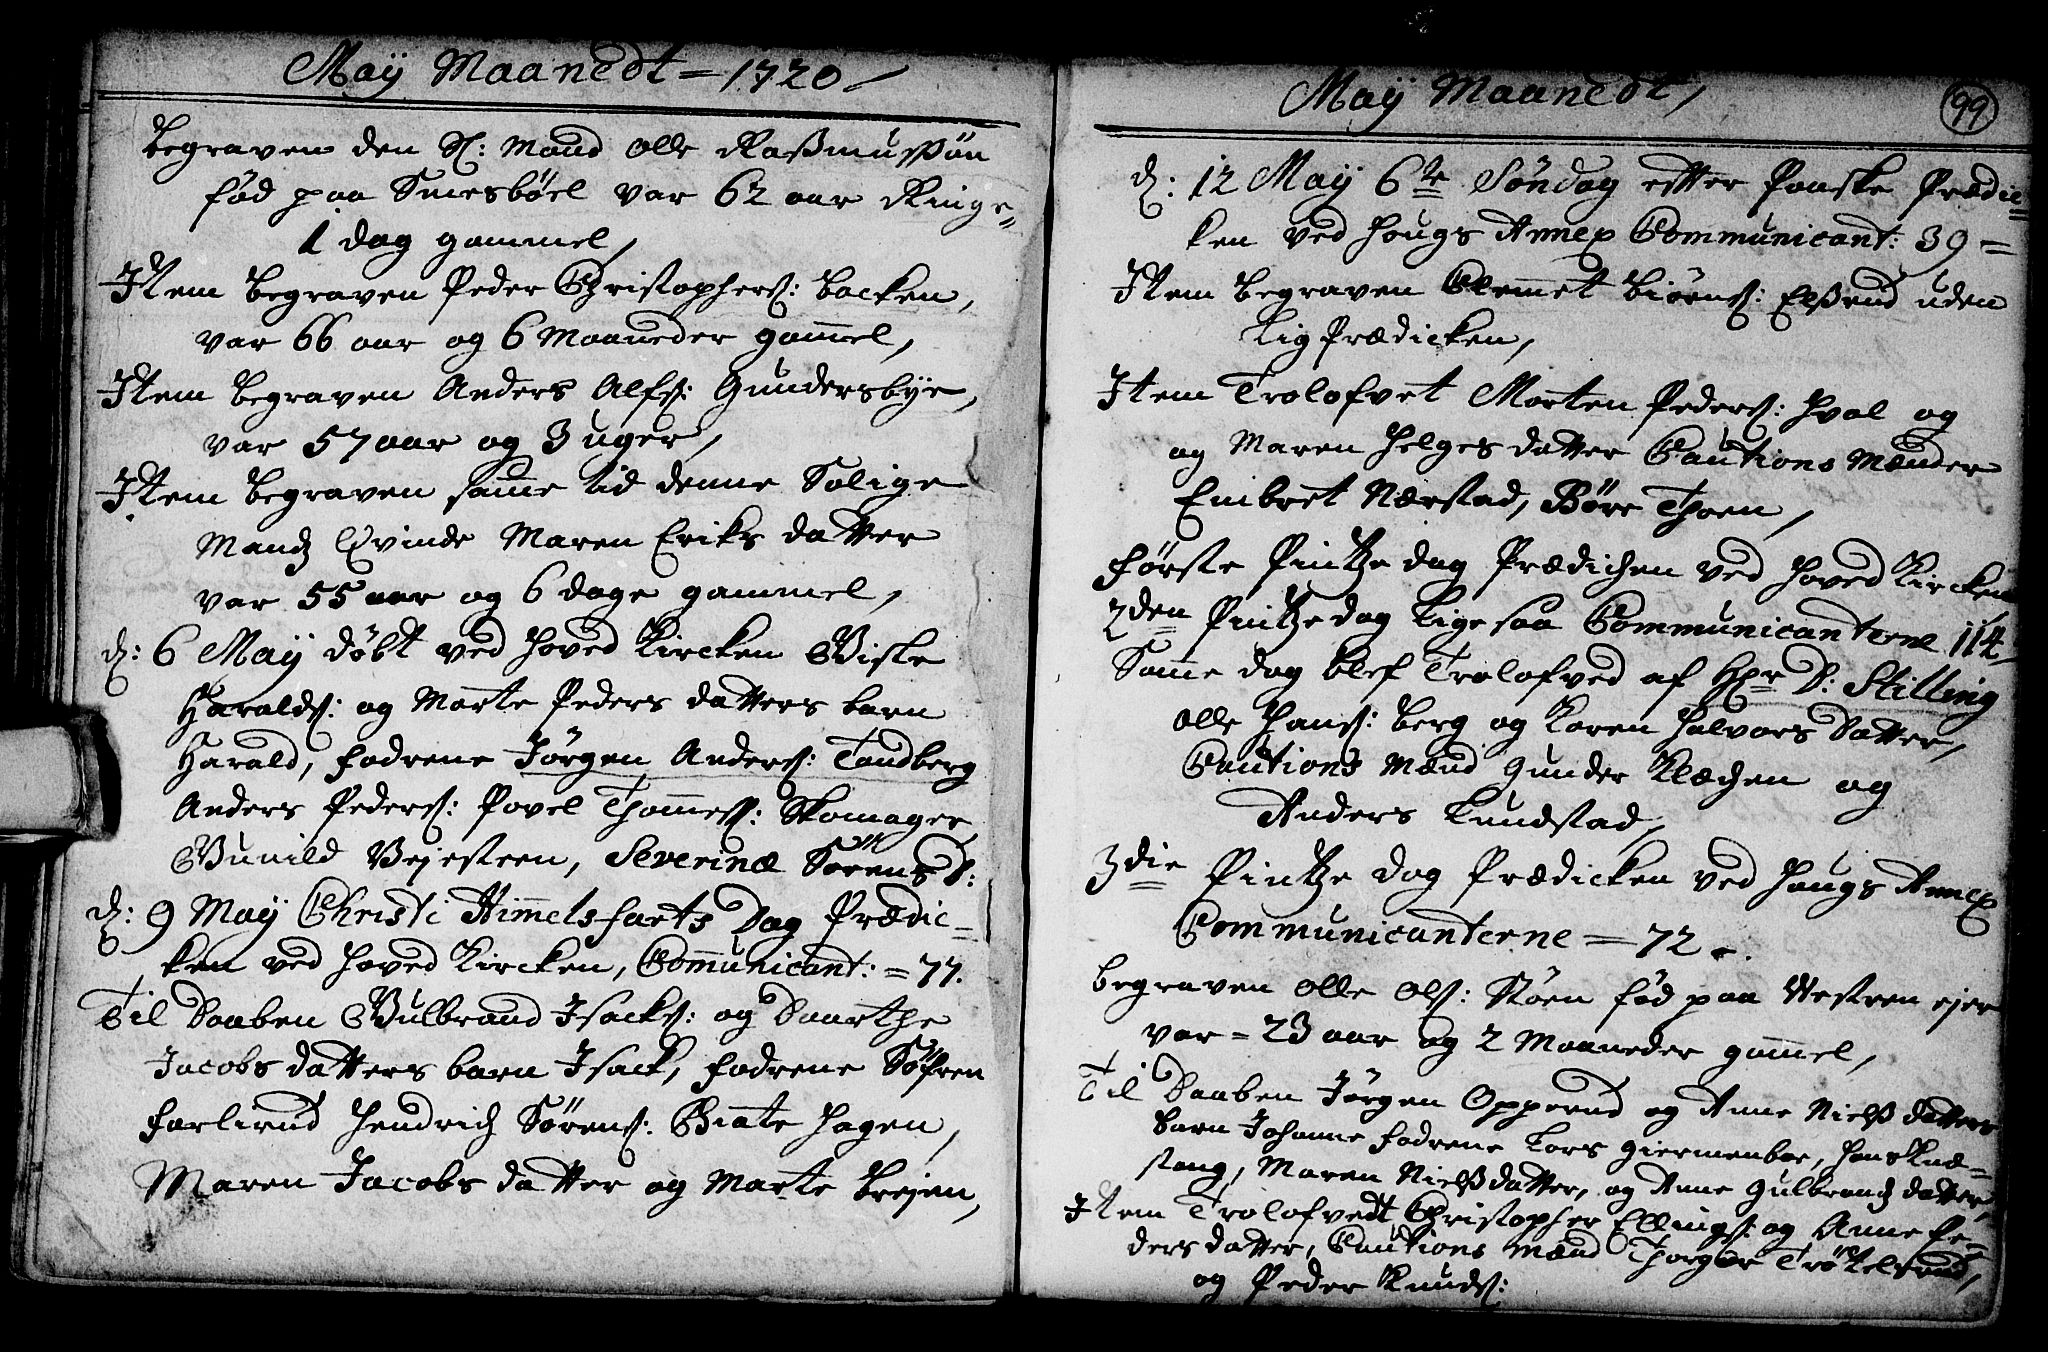 Maÿ Maanedt = 1720 /
begraven den Sl: Mand Olle Rasmussøn
fød paa Smesbøel var 62 aar Ringe=
1 dag gammel,
Item begraven Peder Christophers: backen,
var 66 aar og 6 Maaneder gam̄el,
Item begraven Anders Alfs: Gundersbÿe,
var 57 aar og 3 uger,
Item begraven sam̄e tid denne Salige
Mands Qvinde Maren Eriks datter
var 55 aar og 6 dage gammel,
d: 6 Maÿ døbt ved hoved Kircken
Haralds: og Marte Peders datters barn
Harald, fadrene Jørgen Anders: Tandberg
Anders Peders: Povel Thom̄ess: Skomager
Gunild Vejesteen, Severinæ Sørens D:
d: 9 Maÿ Christi Himmelfarts Dag Prædic=
ken ved hoved Kircken, Com̄unicant: = 77.
Til Daaben Gulbrand Isacks: og Daarthe
Jacobs datters barn Isack, fadrene Søfren
Farlirud Hendrich Sørens: Giate Hagen,
Maren Jacobs datter og Marte brejen,
Maÿ Maanedt,
99
d: 12 Maÿ 6te Søndag efter Paaske Prædic=
ken ved Hougs Annex Communicant: 39 =
Item begraven Clemmet Biørns: Elsrud uden
Lig Prædicken,
Item Trolofvet Morten Peders: Hval og
og Maren Helges datter Cautions Mænder
Embret Nærstad, Børe Thoen,
Første Pintze dag Prædichen ved Hoved Kircken
2den Pintze dag Lige saa Communicanterne 114,
Sam̄e dag blef Trolofved af Hr D: Stilling
Olle Hans: berg og Karen Halvors Datter,
Cautions Mænd Gunder Klæchen og
Anders Lundstad,
3die Pintze dag Prædicken ved Hougs Annex
Communicanterne = 72.
begraven Olle Ols: Støen fød paa Vestren ejer
var = 23 aar og 2 Maaneder gam̄el,
Til Daaben Jørgen Opperud og Anne Niels datters
barn Johanne fadrene Lars giermenboe, Hans Knæ=
stang, Maren Niels datter, og Anne Gulbrands datter,
Item Trolofvedt Christopher Ellings: og Anne Pe=
ders datter, Cautions Mænd Thorger Trøtelsrud,
og Peder Knuds: